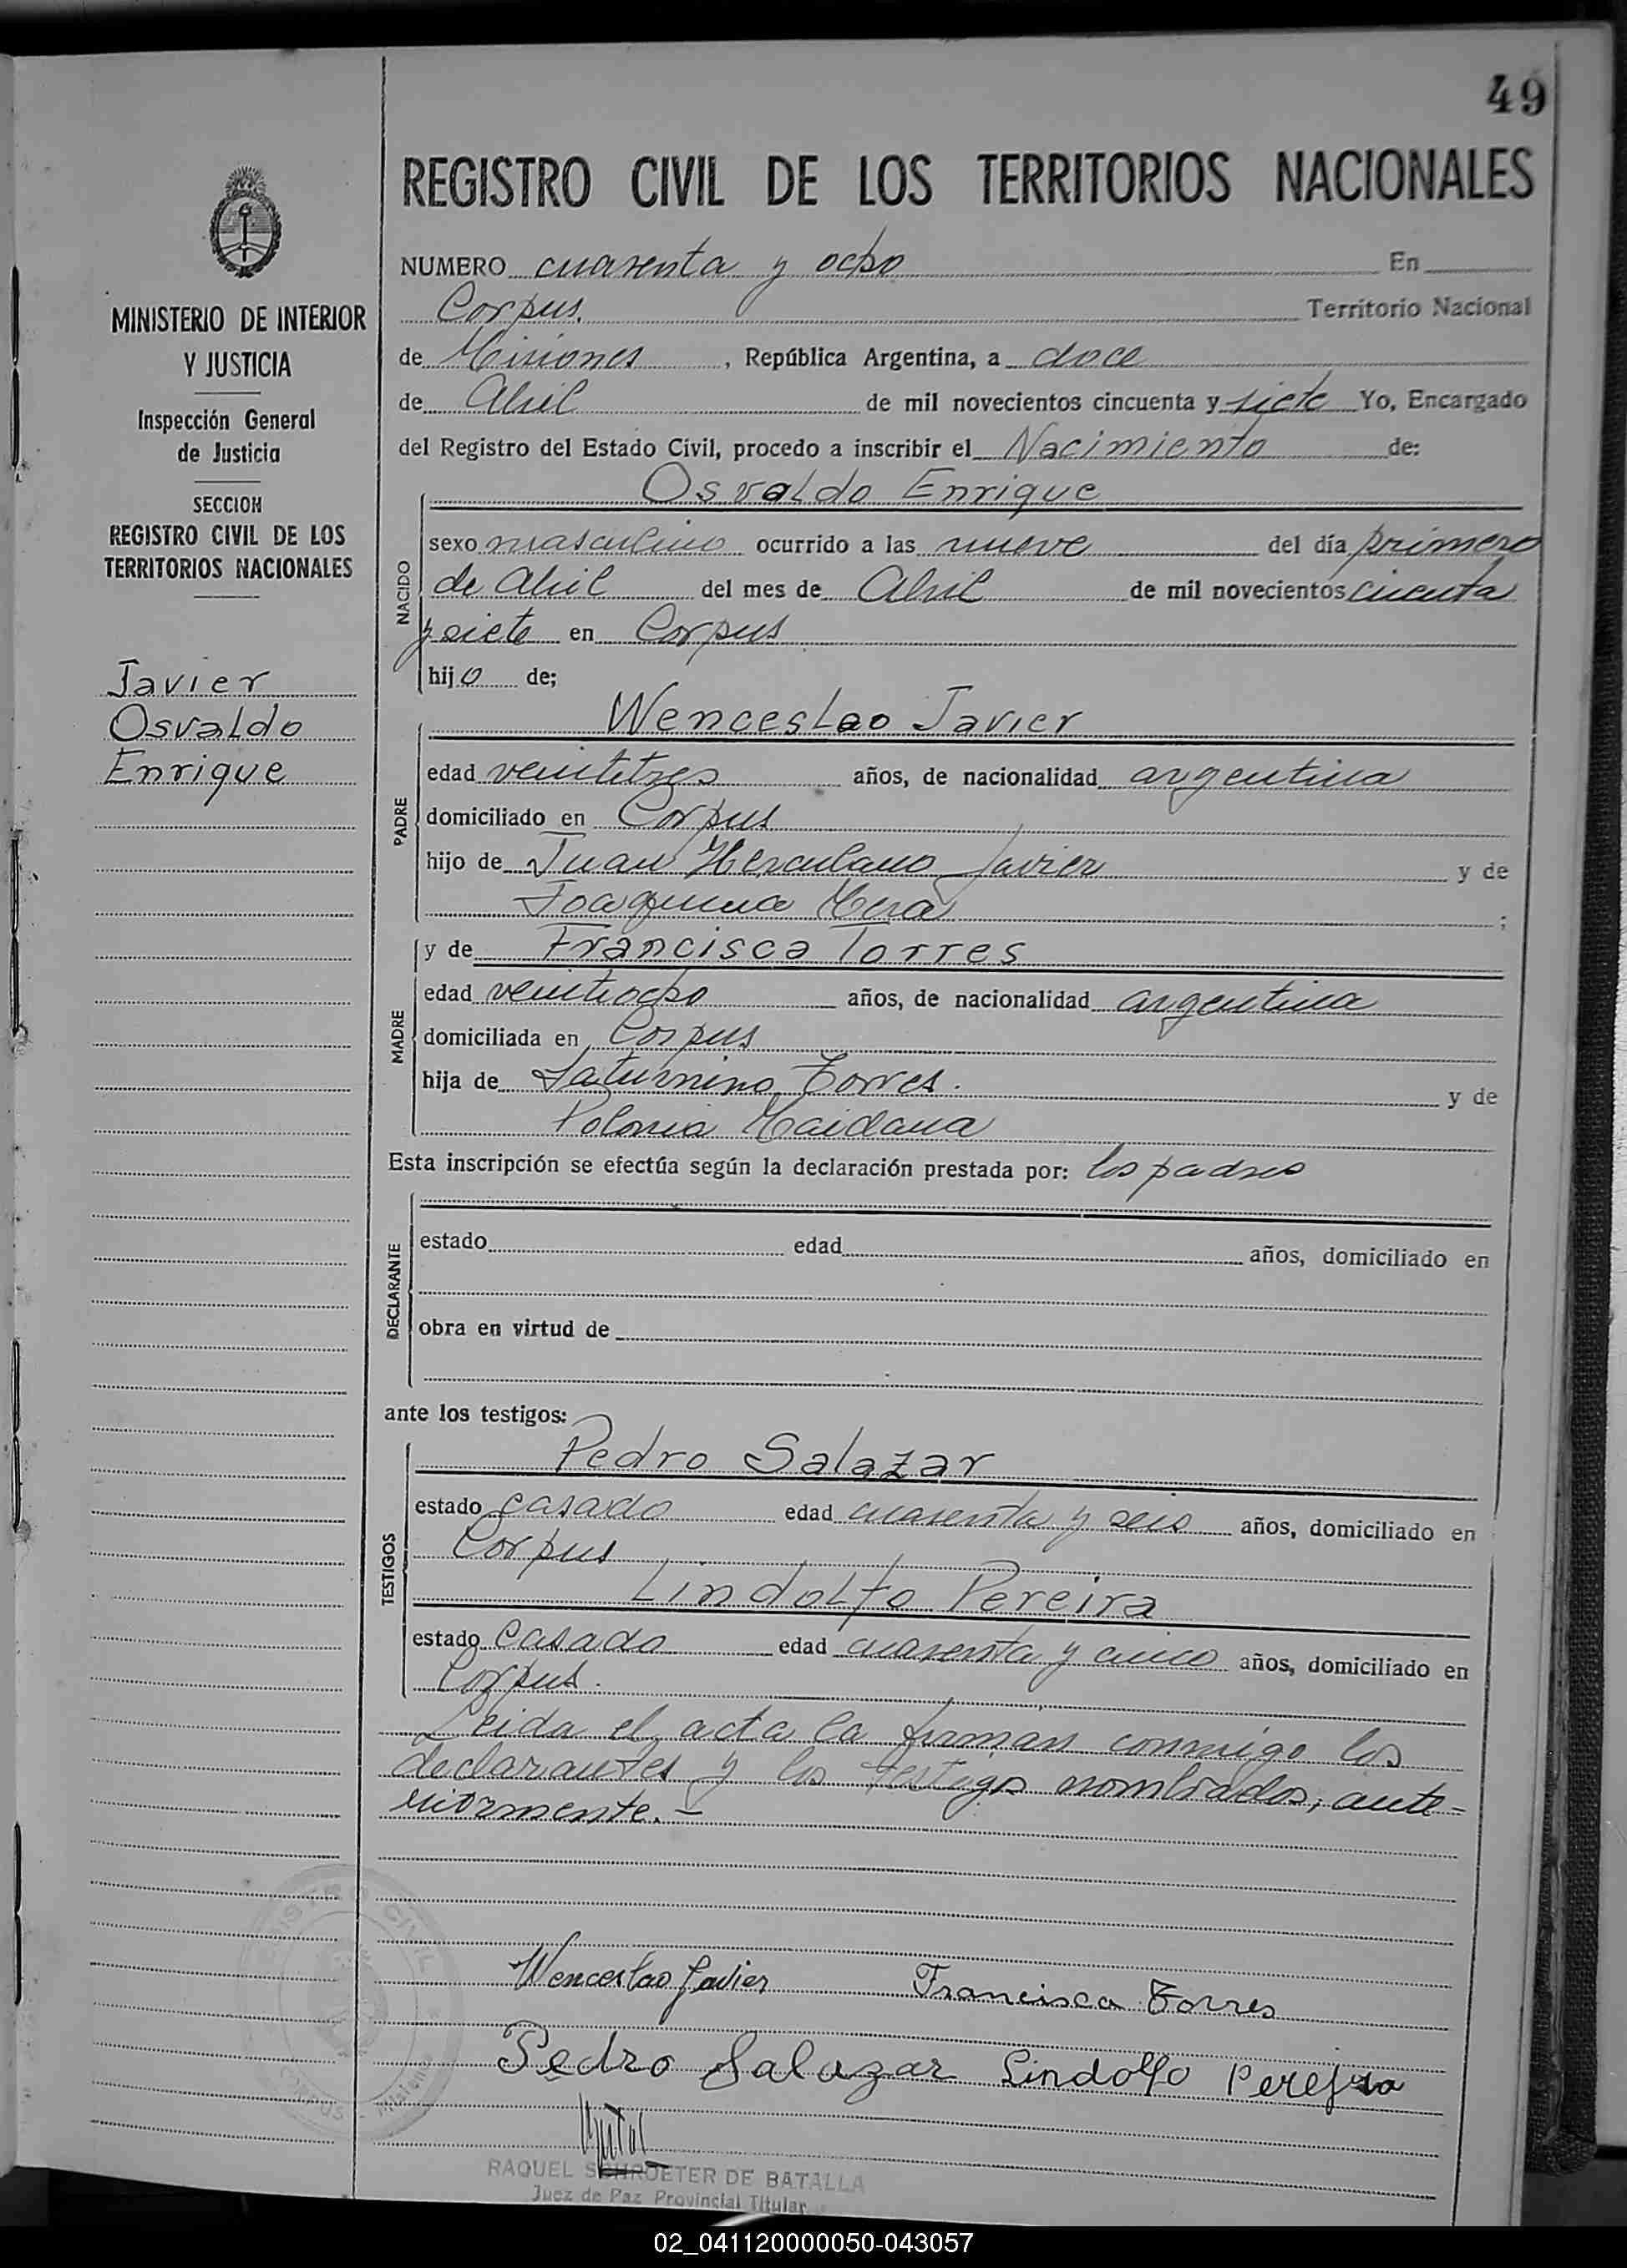 49
REGISTRO CIVIL DE LOS TERRITORIOS NACIONALES
MINISTERIO DE INTERIOR
Y JUSTICIA
Inspección General
de Justicia
SECCION
REGISTRO CIVIL DE LOS
TERRITORIOS NACIONALES
Javier
Osvaldo
Enrique
NUMERO cuarenta y ocho En
Corpus. Territorio Nacional
de Misiones, República Argentina, a doce
de Abril de mil novecientos cincuenta y siete Yo, Encargado
del Registro del Estado Civil, procedo a inscribir el Nacimiento de:
Osvaldo Enrique
NACIDO
sexo masculino ocurrido a las nueve del día primero
de Abril del mes de Abril de mil novecientos cicuenta
y siete en Corpus
hijo de;
Wenceslao Javier
PADRE
edad veintitres años, de nacionalidad argentina
domiciliado en Corpus
hijo de Juan Herculano Javier y de
Joaquina ;
y de Francisca Torres
MADRE
edad veintiocho años, de nacionalidad argentina
domiciliada en Corpus
hija de Saturnino Torres. y de
Polonia Maidana
Esta inscripción se efectúa según la declaración prestada por: los padres
DECLARANTE
estado edad años, domiciliado en
obra en virtud de
ante los testigos:
TESTIGOS
Pedro Salazar
estado casado edad cuarenta y seis años, domiciliado en
Corpus
Lindolfo Pereira
estado casado edad cuarenta y cinco años, domiciliado en
Corpus.
Leida el acta la firman conmigo los
declarantes y los testigos nombrados, ante-
riormente.-
Wenceslao Javier Francisca Torres
Pedro Salazar Lindolfo Perejra
RAQUEL SCHROETER DE BATALLA
Juez de Paz Provincial Titular
02_041120000050-043057